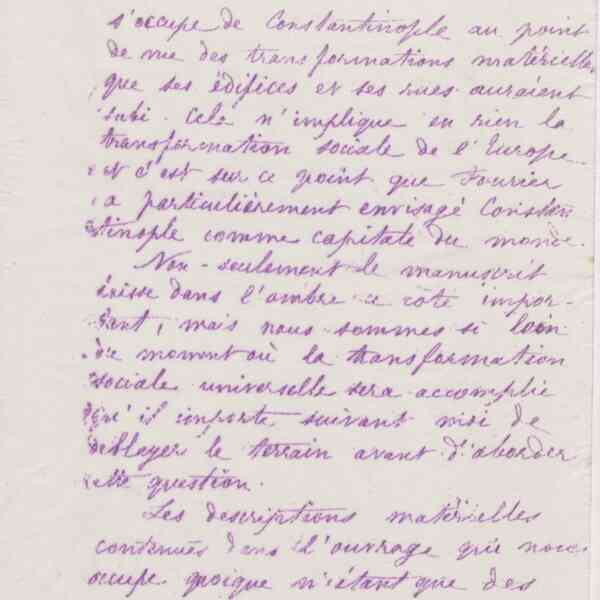 s'occupe de Constantinople au point
de vue des transformations matérielles
que ses édifices et ses rues auraient
subi. Cela n'implique en rien la
transformation sociale de l'Europe.
et c'est sur ce point que Fourier
a particulièrement envisagé Constan
tinople comme capitale du monde.
Non-seulement le manuscrit
laisse dans l'ombre ce côté impor-
tant, mais nous sommes si loin
de moment où la transformation
sociale universelle sera accomplie
qu'il importe suivant moi de
déblayer le terrain avant d'aborder
cette question.
Les descriptions matérielles
contenues dans l'ouvrage qui nous
occupe quoique n'étant que des